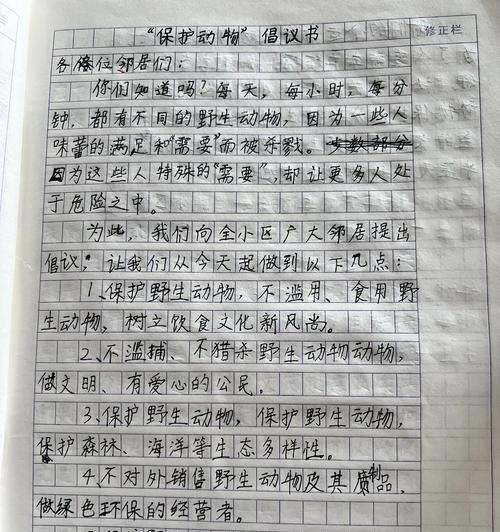 "保护动物"倡议书
修正栏
各位邻居们:
你们知道吗?每天,每小时,每分
钟,都有不同的野生动物,因为一些人
味蕾的满足和"需要"而被杀戮。
因为这些人特殊的"需要",却让更多人处
于危险之中。
为此,我们向全小区广大邻居提出
倡议,让我们从今天起做到以下几点:
1、保护野生动物,不滥用、食用野
生动物,树立饮食文化新风尚。
2、不滥捕、不猎杀野生动物动物,
做文明、有爱心的公民。
3、保护野生动物,保护野生动物,
保护森林、海洋等生态多样性。
4、不对外销售野生动物及其制品,
做绿色环保的经营者。